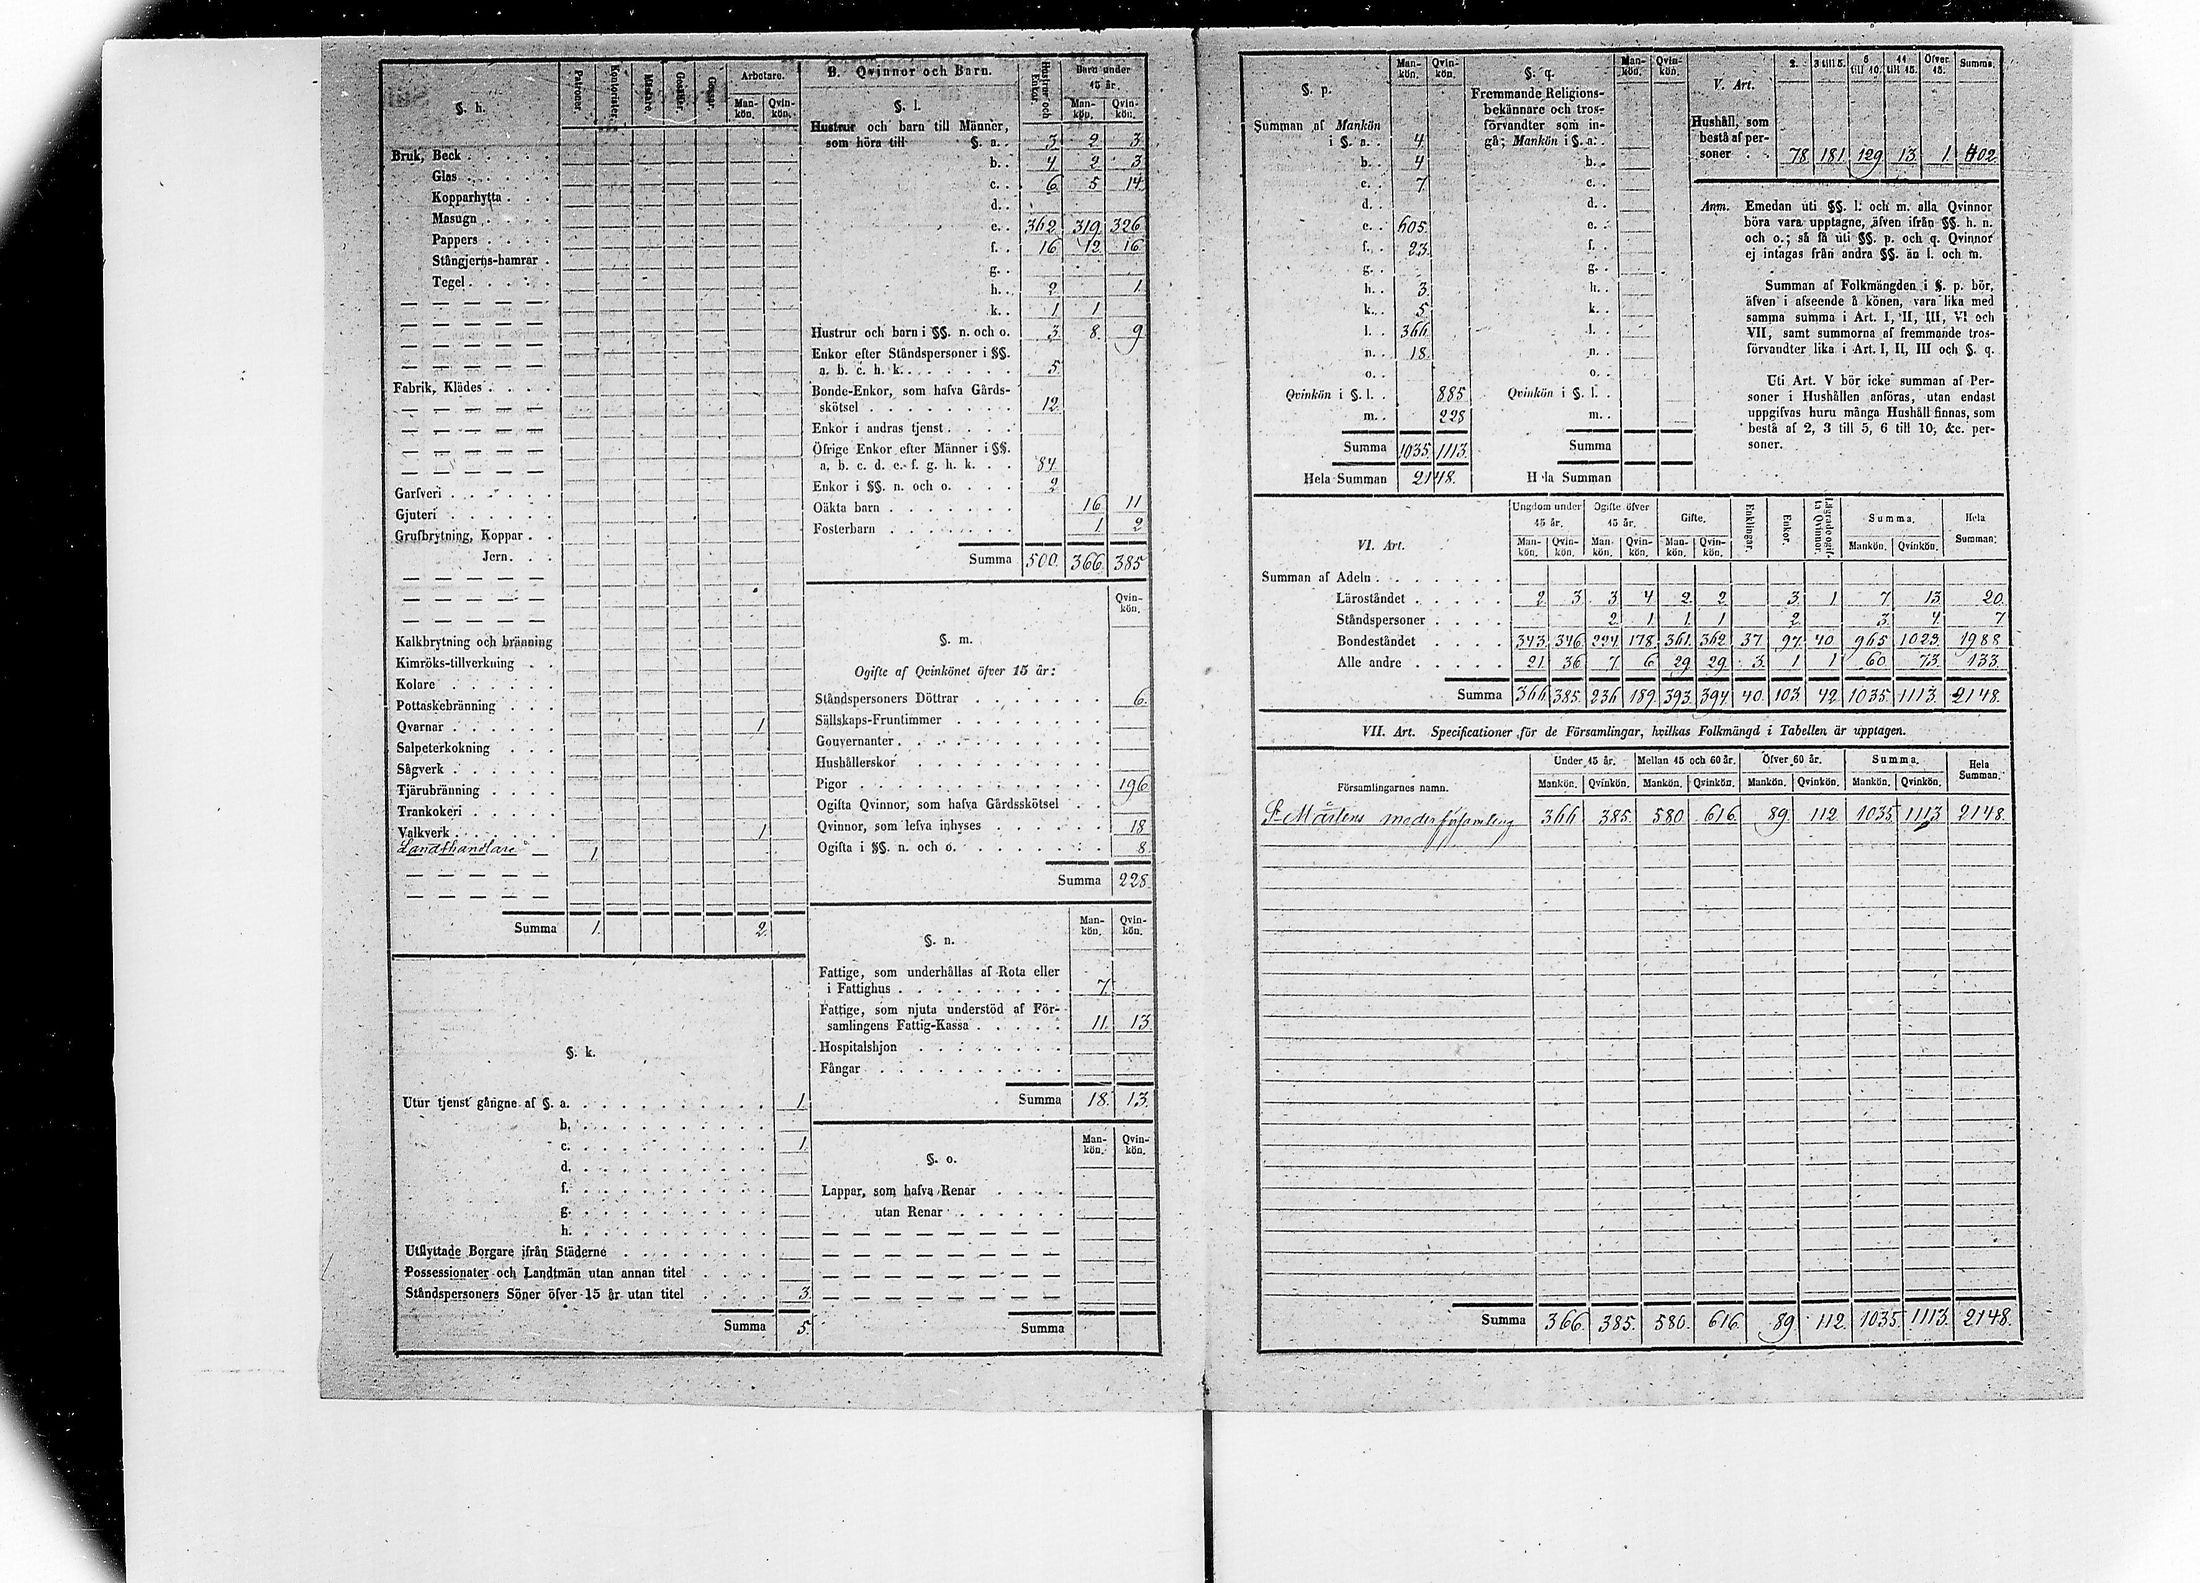 §. h. Patroner. Kontorister. Mästare. Gesäller. Gossar. Arbetare. Mankön. Qvinkön.
Bruk, Beck
Glas
Kopparhytta
Masugn
Pappers
Stångjerns-hamrar
Tegel
Fabrik, Klädes
Garfveri
Gjuteri
Grufbrytning, Koppar
Jern
Kalkbrytning och bränning
Kimröks-tillverkning
Kolare
Pottaskebränning
Qvarnar 1
Salpeterkokning
Sågverk
Tjärubränning
Trankokeri
Valkverk 1
Landthandlare 1
Summa 1. 2.
§. k.
Utur tjenst gångne af §. a. 1
b.
c. 1
d.
f.
g.
h.
Utflyttade Borgare ifrån Städerne
Possessionater och Landtmän utan annan titel
Ståndspersoners Söner öfver 15 år utan titel 3.
Summa 5.
B. Qvinnor och Barn. Hustrur och Enkor. Barn under 15 år.
§. l. Mankön. Qvinkön.
Hustrur och barn till Männer,
som höra till §. a. 3 2 3
b. 4 2 3
c. 6 5 14
d.
e. 362 319 326
f. 16 12 16
g.
h. 2 1
k. 1 1
Hustrur och barn i §§. n. och o. 3 8 9
Enkor efter Ståndspersoner i §§.
a. b. c. h. k. 5.
Bonde-Enkor, som hafva Gårds-
skötsel 12
Enkor i andras tjenst
Öfrige Enkor efter Männer i §§.
a. b. c. d. e. f. g. h. k. 84
Enkor i §§. n. och o. 2
Oäkta barn 16 11
Fosterbarn 1 2
Summa 500. 366. 385
§. m. Qvinkön.
Ogifte af Qvinkönet öfver 15 år:
Ståndspersoners Döttrar 6.
Sällskaps-Fruntimmer
Gouvernanter
Hushållerskor
Pigor 196
Ogifta Qvinnor, som hafva Gårdsskötsel
Qvinnor, som lefva inhyses 18
Ogifta i §§. n. och o. 8
Summa 228.
§. n. Mankön. Qvinkön.
Fattige, som underhållas af Rota eller
i Fattighus 7.
Fattige, som njuta understöd af För-
samlingens Fattig-Kassa 11. 13
Hospitalshjon
Fångar
Summa 18. 13.
§. o. Mankön. Qvinkön.
Lappar, som hafva Renar
utan Renar
Summa
§. p. Mankön. Qvinkön.
Summan af Mankön
i §. a. 4
b. 4
c. 7
d.
e. 605.
f. 23.
g.
h. 3.
k. 5
l. 366
n. 18.
o.
Qvinkön i §. l. 885
m. 228
Summa 1035. 1113.
Hela Summan 2148.
§. q. Mankön. Qvinkön.
Fremmande Religions-
bekännare och tros-
förvandter som in-
gå; Mankön i §. a.
b.
c.
d.
e.
f.
g.
h.
k.
l.
n.
o.
Qvinkön i §. l.
m.
Summa
Hela Summan
V. Art. 2. 3 till 5. 6 till 10. 11 till 15. Öfver 15. Summa.
Hushåll, som
bestå af per-
soner 78 181 129 13 1. 402
Anm. Emedan uti §§. l. och m. alla Qvinnor
böra vara upptagne, äfven ifrån §§. h. n.
och o.; så få uti §§. p. och q. Qvinnor
ej intagas från andra §§. än l. och m.
Summan af Folkmängden i §. p. bör,
äfven i afseende å könen, vara lika med
samma summa i Art. I, II, III, VI och
VII, samt summorna af fremmande tros-
förvandter lika i Art. I, II, III och §. q.
Uti Art. V bör icke summan af Per-
soner i Hushållen anföras, utan endast
uppgifvas huru många Hushåll finnas, som
bestå af 2, 3 till 5, 6 till 10, &c. per-
soner.
VI. Art. Ungdom under 15 år. Ogifte öfver 15 år. Gifte. Enklingar. Enkor. Summa. Hela Summan.
Mankön. Qvinkön. Mankön. Qvinkön. Mankön. Qvinkön. Mankön. Qvinkön.
Summan af Adeln
Läroståndet 2 3 3 4 2 2 3 1 7 13 20.
Ståndspersoner 2 1 1 1 2 3 4 7
Bondeståndet 343 346 224 178 361 362 37 97 40 965 1023 1988
Alle andre 21 36 7 6 29 29 3 1 1 60 73 133
Summa 366 385 236 189 393 394 40 103 42 1035 1113 2148.
VII. Art. Specificationer för de Församlingar, hvilkas Folkmängd i Tabellen är upptagen.
Församlingarnes namn. Under 15 år. Mellan 15 och 60 år. Öfver 60 år. Summa. Hela Summan.
Mankön. Qvinkön. Mankön. Qvinkön. Mankön. Qvinkön. Mankön. Qvinkön.
St Mårtens moderförsamling 366 385 580 616 89 112 1035 1113 2148.
Summa 366. 385. 580. 616. 89 112. 1035. 1113. 2148.